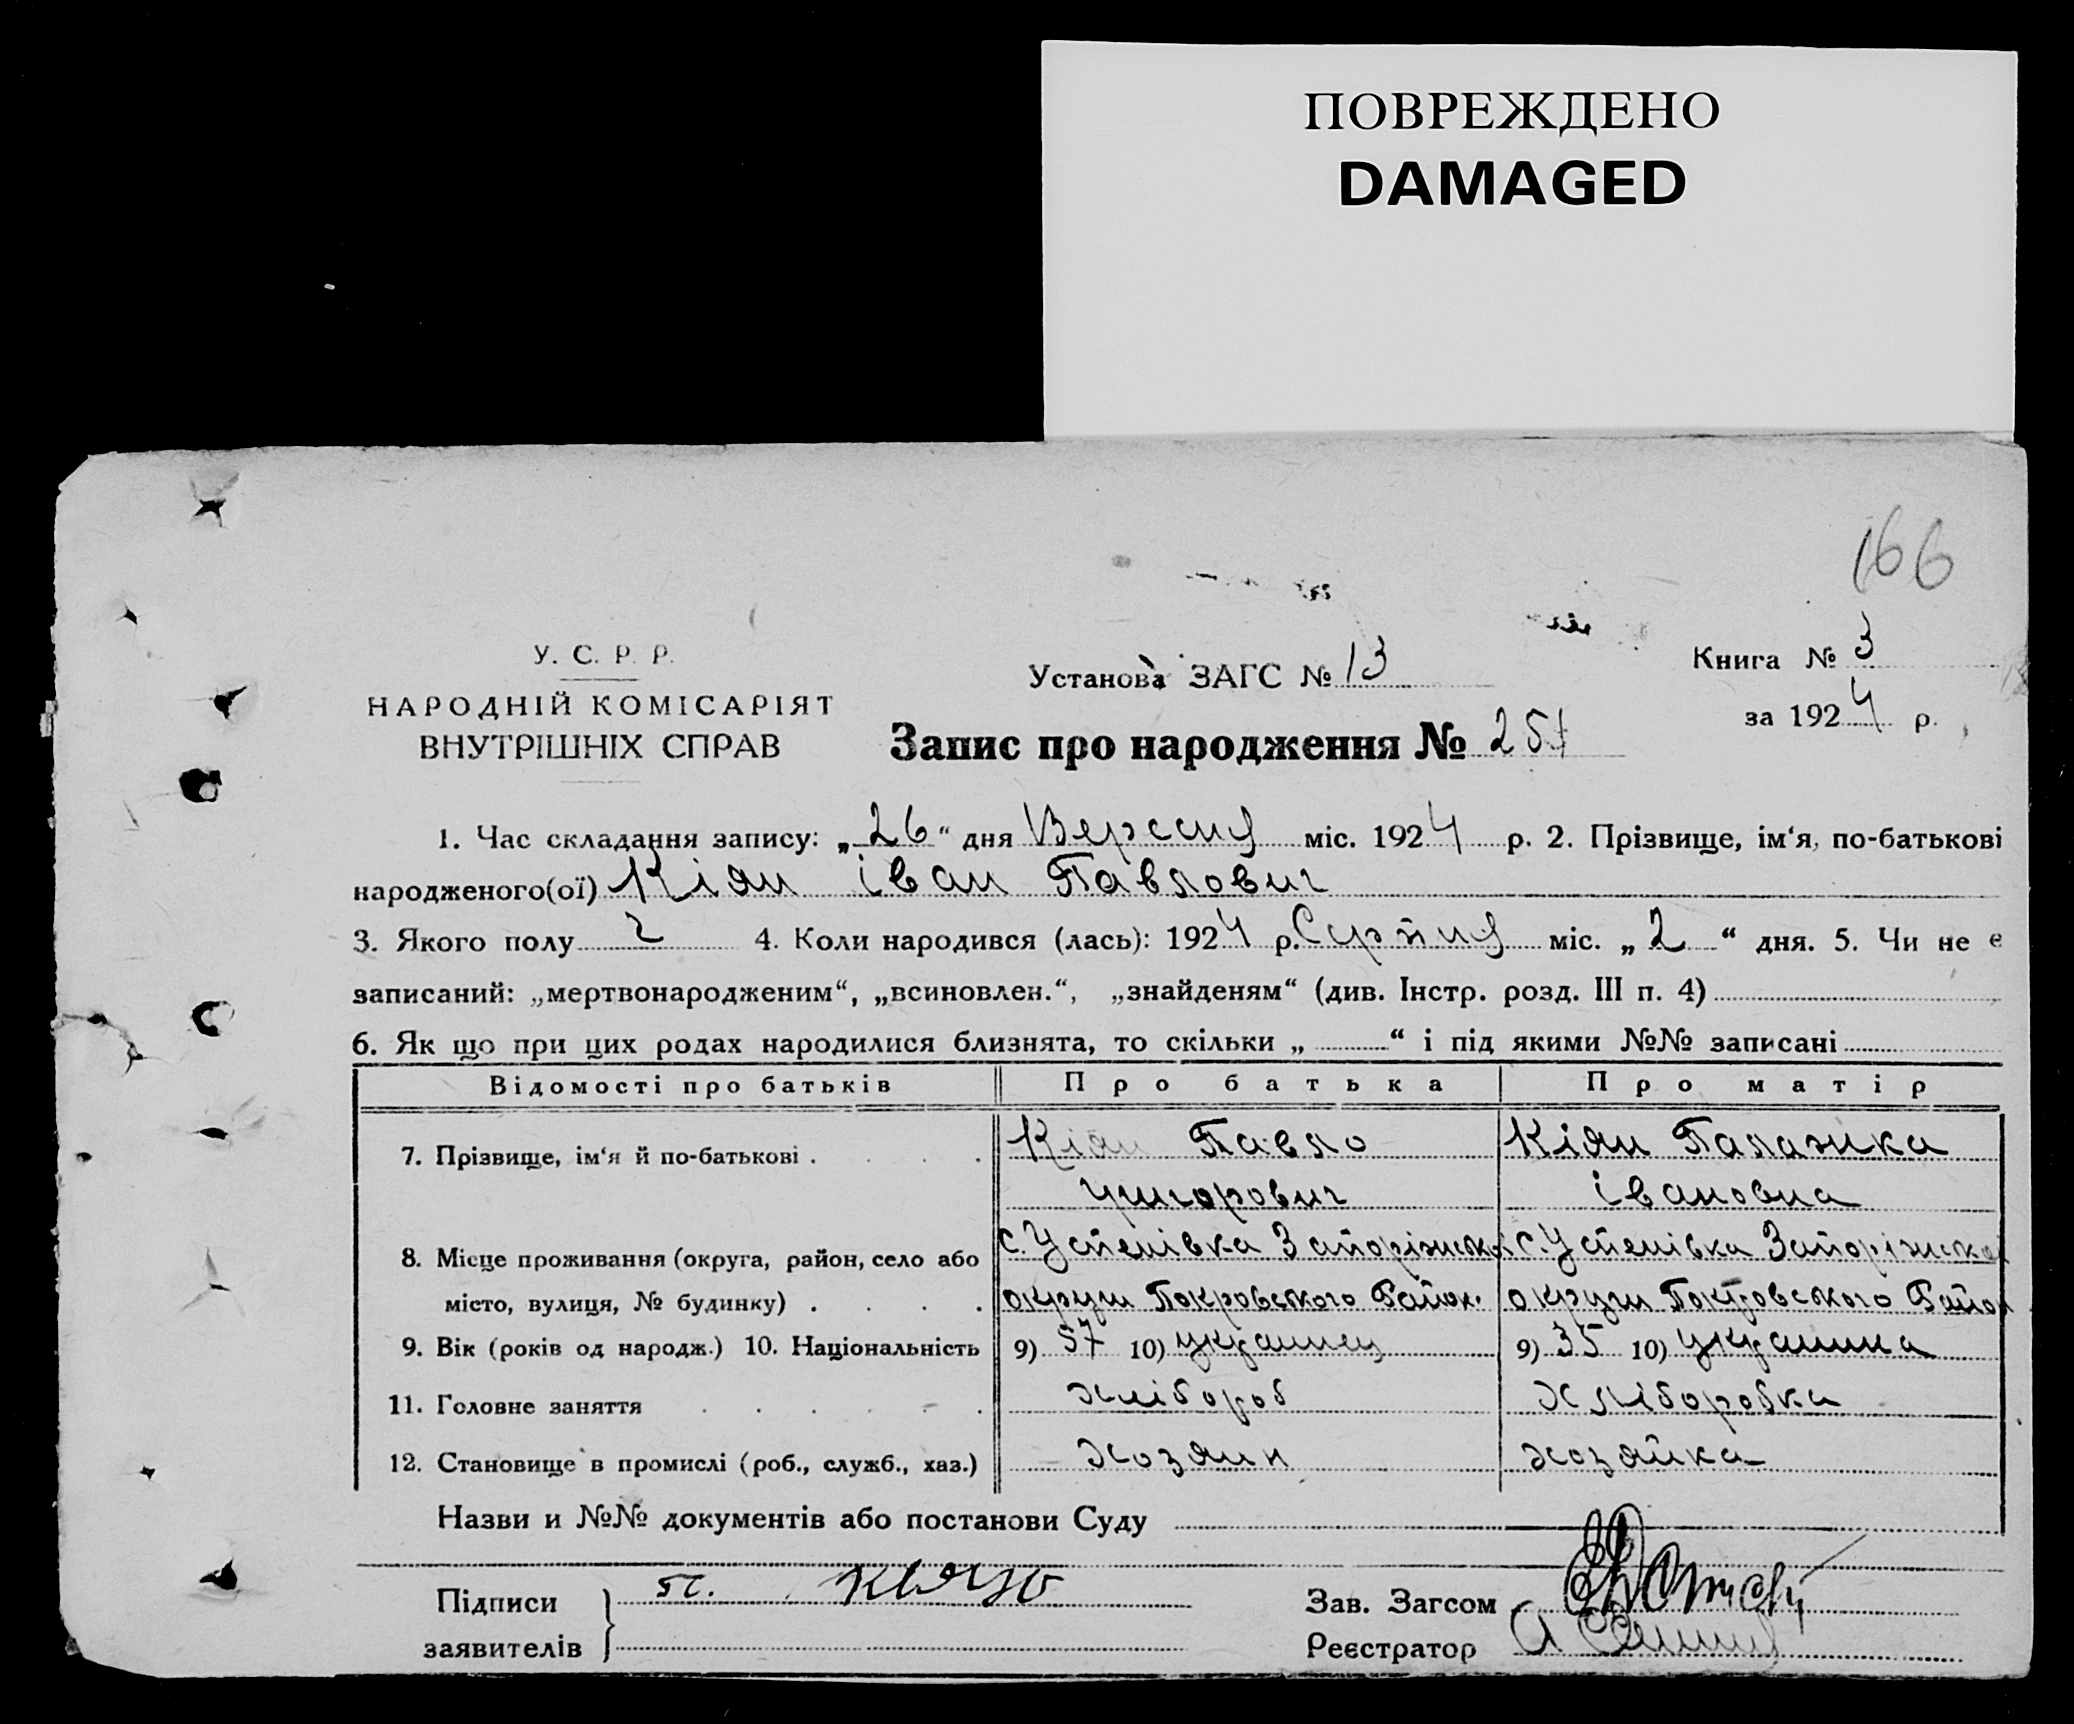 ПОВРЕЖДЕНО
DAMAGED
166
У. С. Р. Р.
НАРОДНІЙ КОМІСАРІЯТ
ВНУТРІШНІХ СПРАВ
Установа ЗАГС № 13
Книга № 3
за 1924 р.
Запис про народження № 257
1. Час складання запису: „26“ дня Вересня міс. 1924 р. 2. Прізвище, ім‘я, по-батькові
народженого(ої) Кіян Іван Павлович
3. Якого полу ч 4. Коли народився (лась): 1924 р. Серпня міс. „2“ дня. 5. Чи не є
записаний: „мертвонародженим“, „всиновлен.“, „знайденям“ (див. Інстр. розд. III п. 4)
6. Як що при цих родах народилися близнята, то скільки „ “ і під якими №№ записані
Відомості про батьків Про батька Про матір
7. Прізвище, ім‘я й по-батькові . . . . . Кіян Павло Кіян Палажка
Григорович Івановна
8. Місце проживання (округа, район, село або с. Успенівка Запоріжської с. Успенівка Запоріжської
місто, вулиця, № будинку) . . . . округи Покровського Район. округи Покровського Район
9. Вік (років од народж.) 10. Національність 9) 37 10) украинец 9) 35 10) украинка
11. Головне заняття . . . . . . хлібороб хліборобка
12. Становище в промислі (роб., служб., хаз.) хозяин хозяйка
Назви и №№ документів або постанови Суду
Підписи
заявителів
Зав. Загсом
Реєстратор